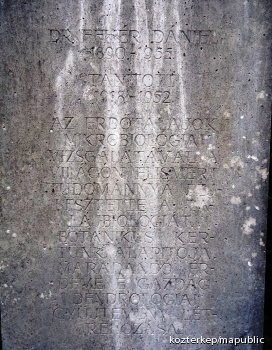 DR. FEHÉR DÁNIEL
1890-1955
TANÍTOTT
1918-1952
AZ ERDŐTALAJOK
MIKROBIOLÓGIAI
VIZSGÁLATA VÁLT A
VILÁGON ELISMERT
TUDOMÁNNYÁ
A BIOLÓGIAI
BOTANIKUS KER-
TÜNK ALAPÍTÓJA
MARADANDÓ ÉR-
DEME A GAZDAG
DENDROLÓGIAI
GYŰJTEMÉNY LÉT-
REHOZÁSA
kozterkep/mapublic